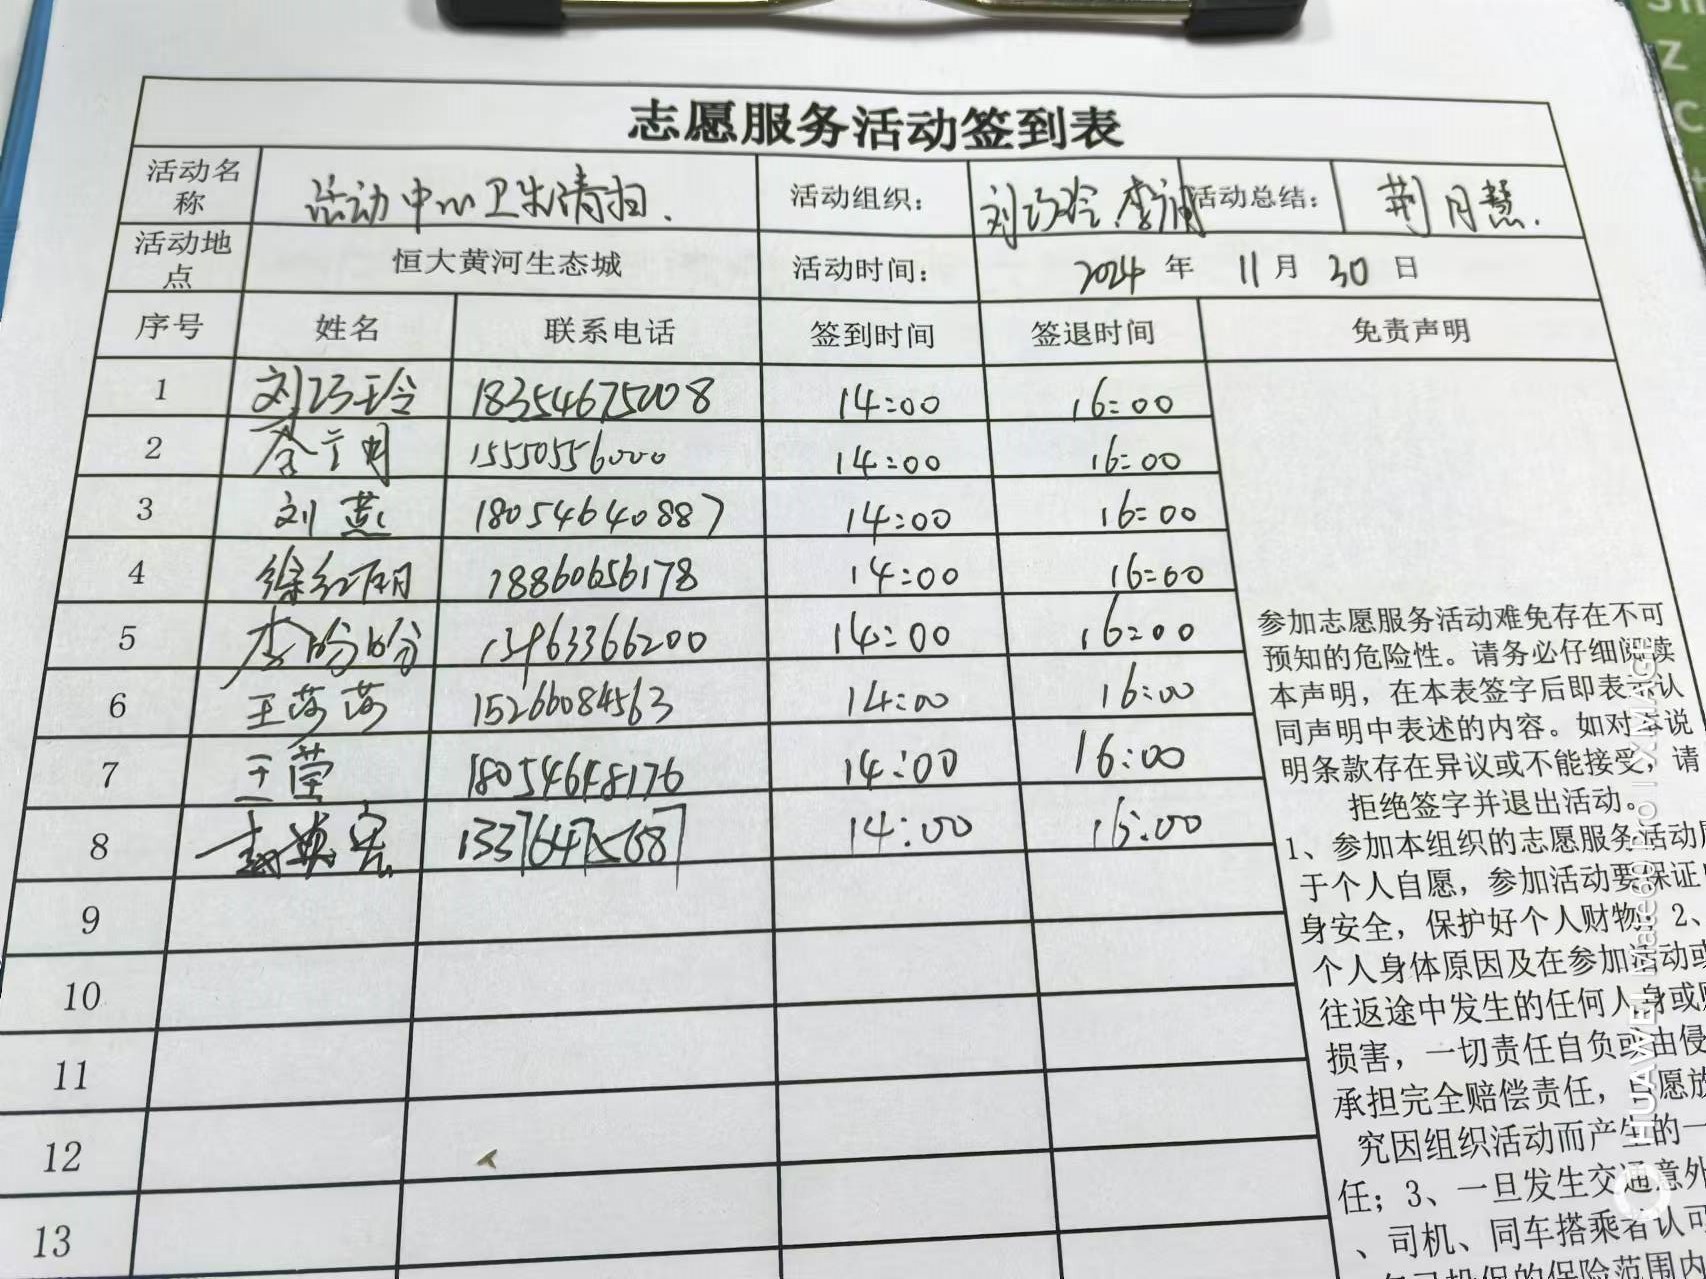 志愿服务活动签到表
活动名称 活动中心卫生清扫. 活动组织: 刘巧玲 李 活动总结: 荆月慧.
活动地点 恒大黄河生态城 活动时间: 2024 年 11 月 30 日
序号 姓名 联系电话 签到时间 签退时间 免责声明
1 刘巧玲 18354675008 14:00 16:00
2 15550556000 14:00 16:00
3 刘燕 18054640887 14:00 16:00
4 徐红明 18860656178 14:00 16:00
5 李盼盼 14:00 16:00
6 王莎莎 15266084563 14:00 16:00
7 王莹 18054648176 14:00 16:00
8 14:00 16:00
9
10
11
12
13
参加志愿服务活动难免存在不可
预知的危险性。请务必仔细阅读
本声明，在本表签字后即表示认
同声明中表述的内容。如对本说
明条款存在异议或不能接受，请
拒绝签字并退出活动。
1、参加本组织的志愿服务活动
于个人自愿，参加活动要保证
身安全，保护好个人财物。2、
个人身体原因及在参加活动或
往返途中发生的任何人身或
损害，一切责任自负或由侵
承担完全赔偿责任，自愿放
究因组织活动而产生的一
任；3、一旦发生交通意外
、司机、同车搭乘者认可
的保险范围内
HUAWEI Mate60 Pro | XMAGE